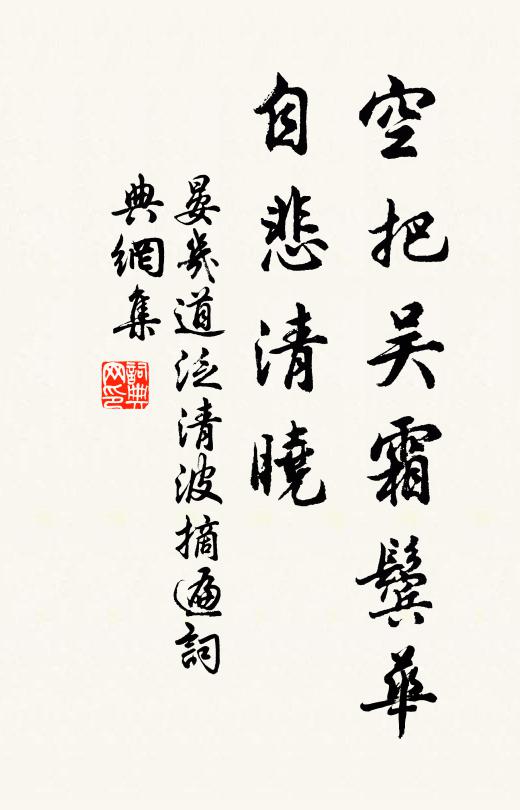 空把吴霜鬓華
自悲清曉
晏幾道泛清波摘遍詞
典網集
詞典网印